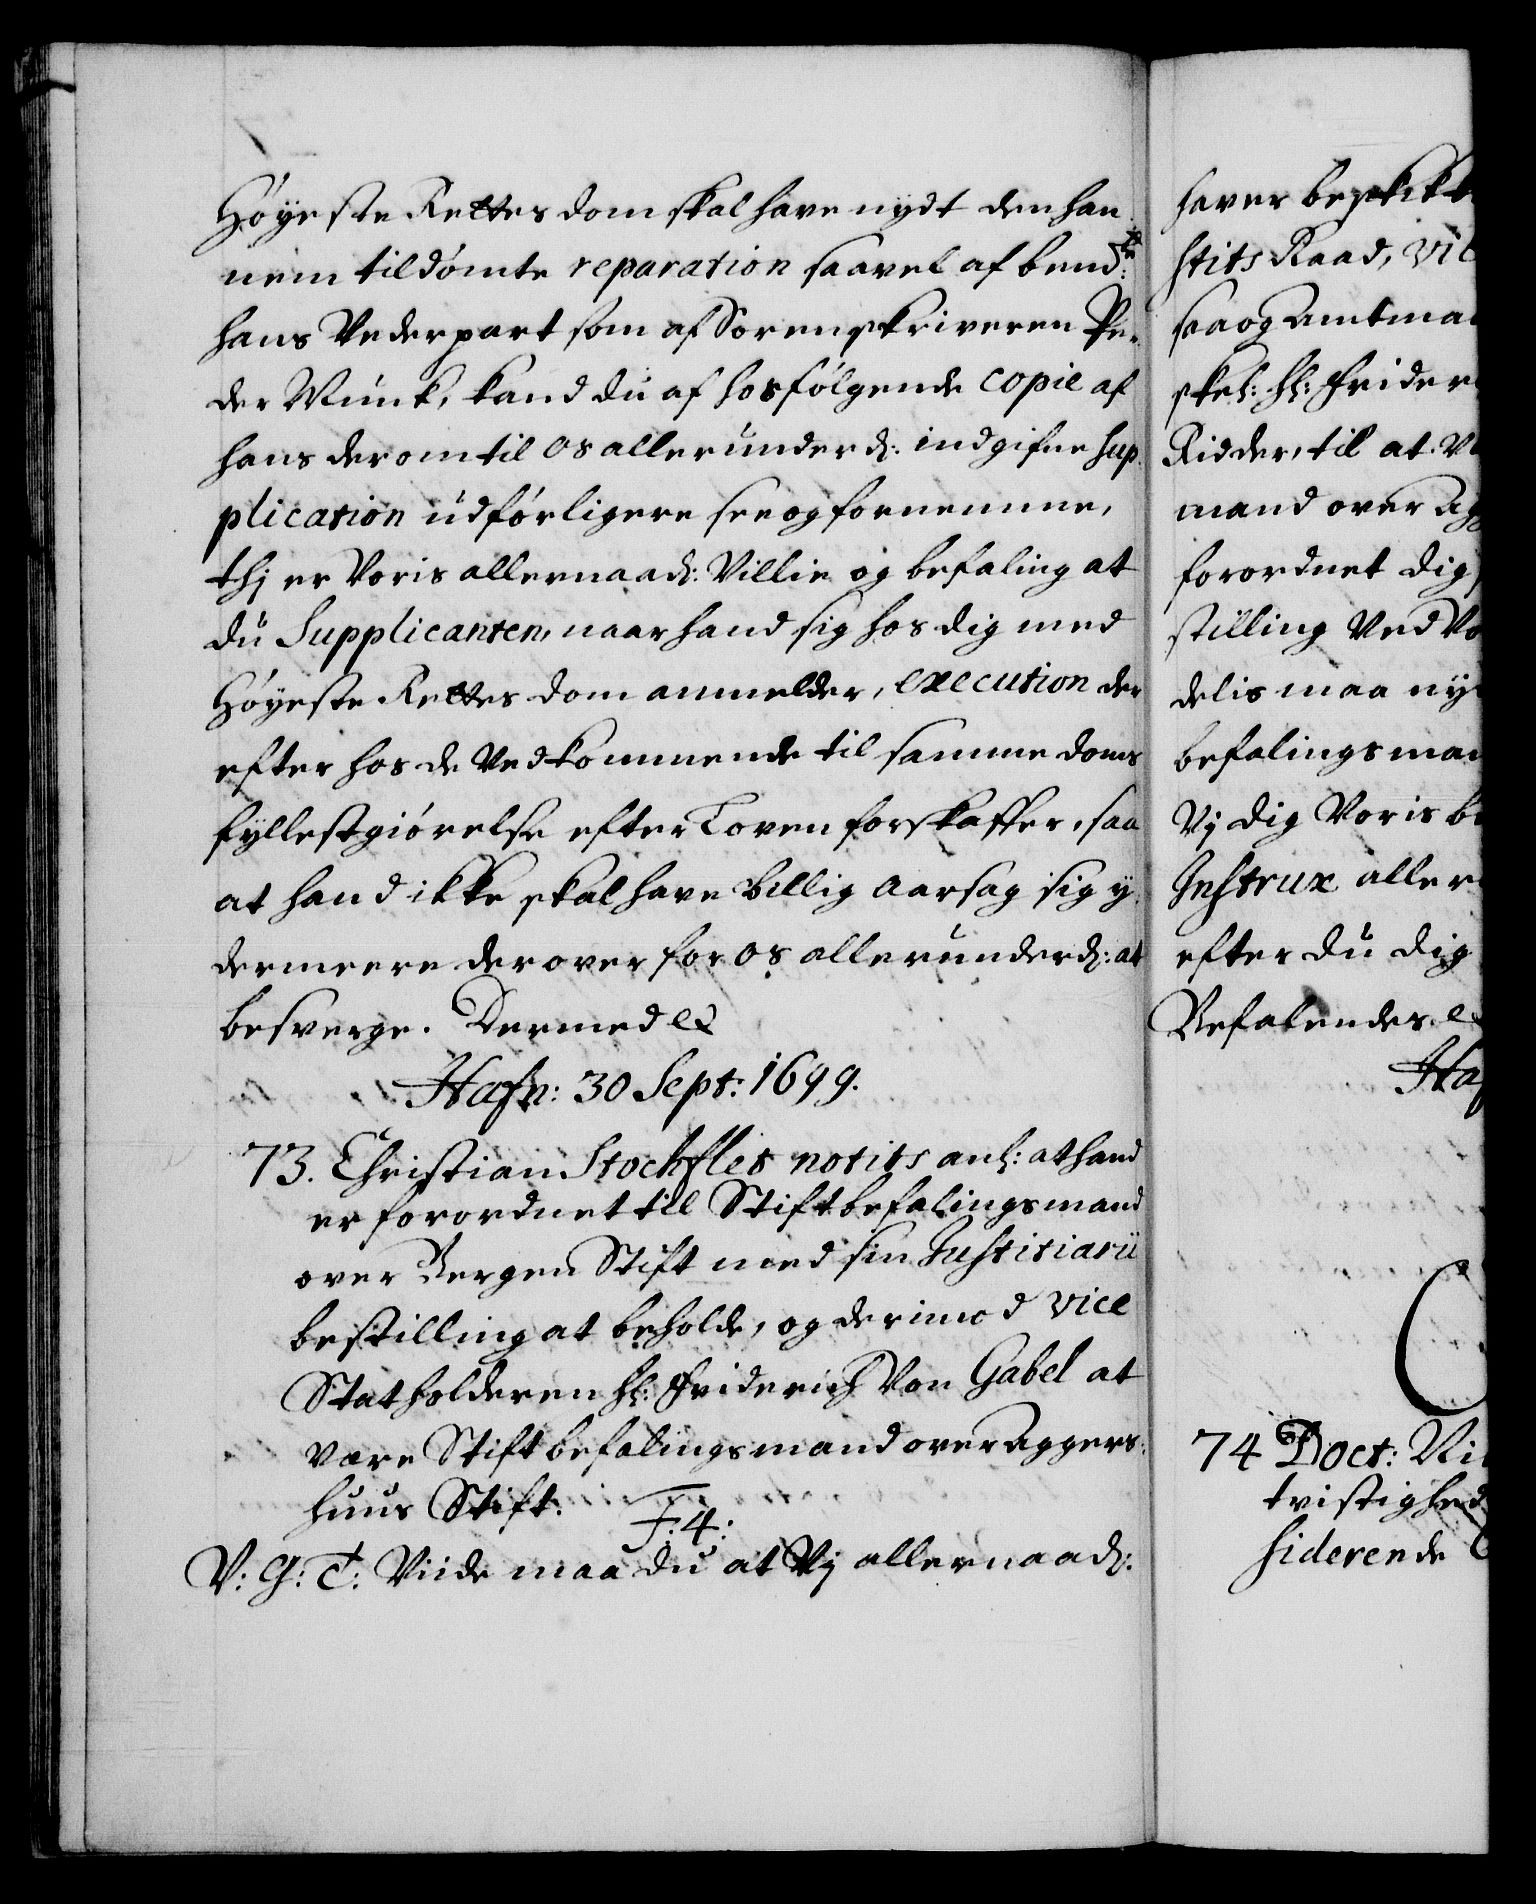 Høyeste Rettes dom skal have nydt den han
nem tildømte reparation saavel af bemd:te
hans Vederpart som af Sorenskriveren Pe-
der Munk, kand du af hosfølgende copie af
hans derom til os allerunderd: indgifne sup-
plication udførligere see og fornemme,
thj er Voris allernaad: Villie og befaling at
du Supplicanten, naar hand sig hos dig med
Høyeste Rettes dom anmelder, execution der
efter hos de Vedkommende til samme doms
fyllestgiørelse efter Loven forskaffer, saa
at hand ikke skal have billig aarsag sig y-
dermeere derover for os allerunderd: at
besverge. Dermed ec
Hafn: 30 Sept: 1699.
73. Christian Stockflet notits anl: at hand
er forordnet till Stiftbefalingsmand
over Bergen Stift med sin Justitiarii
bestilling at beholde, og derimod vice
Statholderen hl: Friderich Von Gabel at
være Stiftbefalingsmand over Aggers-
huus Stift.
F: 4:
V: G: T: Viide maa du at Vj allernaad:
haver beskikt
stits Raad, vic
saa og Amtman
skel: hl: Frider
Ridder, til at v
mand over Agg
forordnet dig
stilling ved Vo
delis maa ny
befalingsman
Vj dig Voris b
Instrux aller
efter du dig
Befalendes e
Haf
74 Doct: Ni
tvistighed
siderende